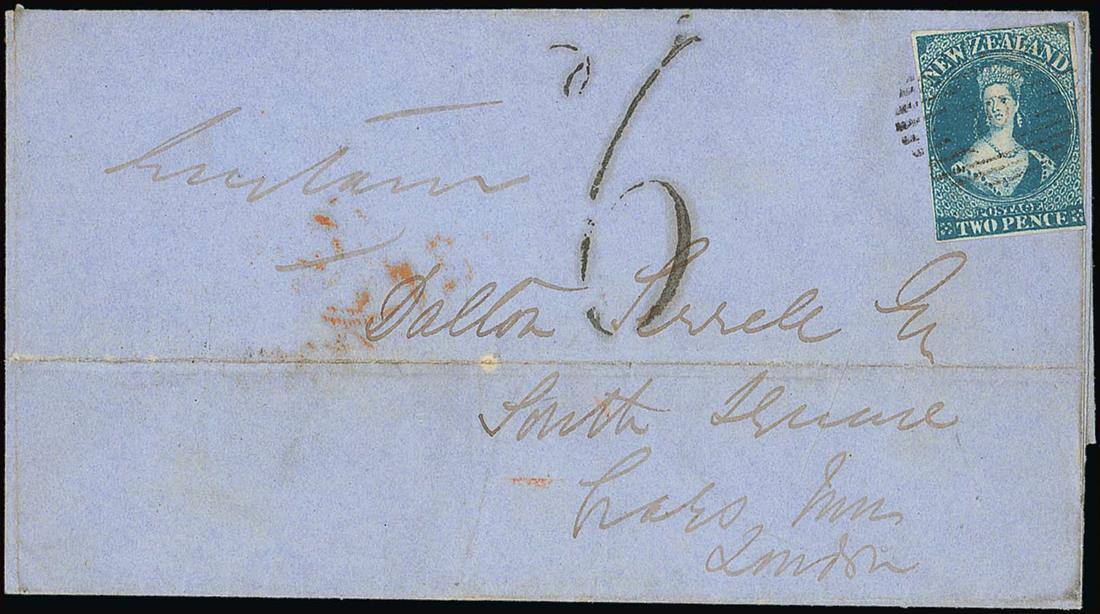 NEW ZEALAND
POSTAGE
TWO PENCE
6
Dalton Serrell Esq
South Square
Grays Inn
London